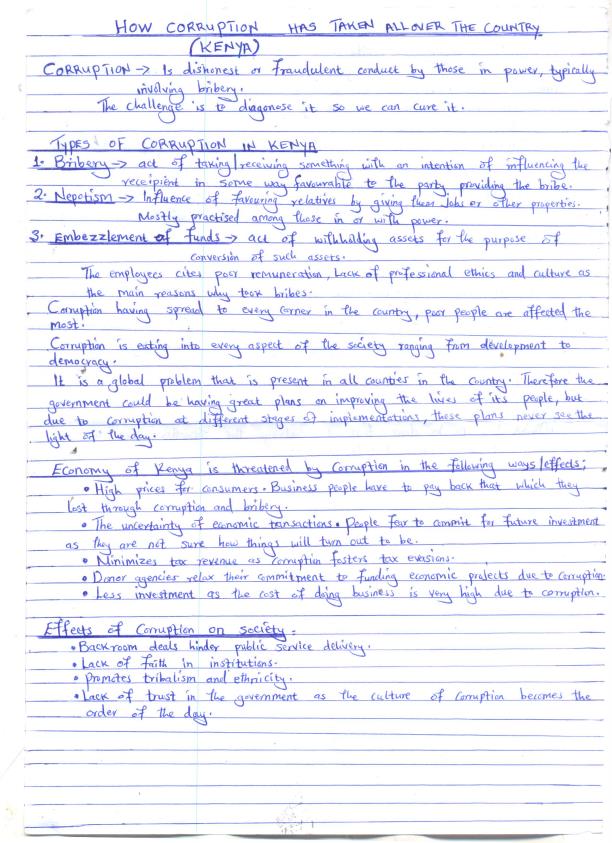 HOW CORRUPTION HAS TAKEN ALL OVER THE COUNTRY
(KENYA)
CORRUPTION → Is dishonest or fraudulent conduct by those in power, typically
involving bribery.
The challenge is to diagonose it so we can cure it.
TYPES OF CORRUPTION IN KENYA
1. Bribery → act of taking/receiving something with an intention of influencing the
receipient in some way favourable to the party providing the bribe.
2. Nepotism → Influence of favouring relatives by giving them Jobs or other properties.
Mostly practised among those in or with power.
3. Embezzlement of funds → act of withholding assets for the purpose of
conversion of such assets.
The employees cites poor remuneration, Lack of professional ethics and culture as
the main reasons why took bribes.
Corruption having spread to every corner in the country, poor people are affected the
most.
Corruption is eating into every aspect of the society ranging from development to
democracy.
It is a global problem that is present in all counties in the country. Therefore the
government could be having great plans on improving the lives of its people, but
due to corruption at different stages of implementations, these plans never see the
light of the day.
Economy of Kenya is threatened by Corruption in the following ways/effects;
• High prices for consumers. Business people have to pay back that which they
lost through corruption and bribery.
• The uncertainty of economic transactions. People fear to commit for future investment
as they are not sure how things will turn out to be.
• Minimizes tax revenue as corruption fosters tax evasions.
• Donor agencies relax their commitment to funding economic projects due to corruption.
• Less investment as the cost of doing business is very high due to corruption.
Effects of Corruption on society:
• Backroom deals hinder public service delivery.
• Lack of faith in institutions.
• Promotes tribalism and ethnicity.
• Lack of trust in the government as the culture of corruption becomes the
order of the day.